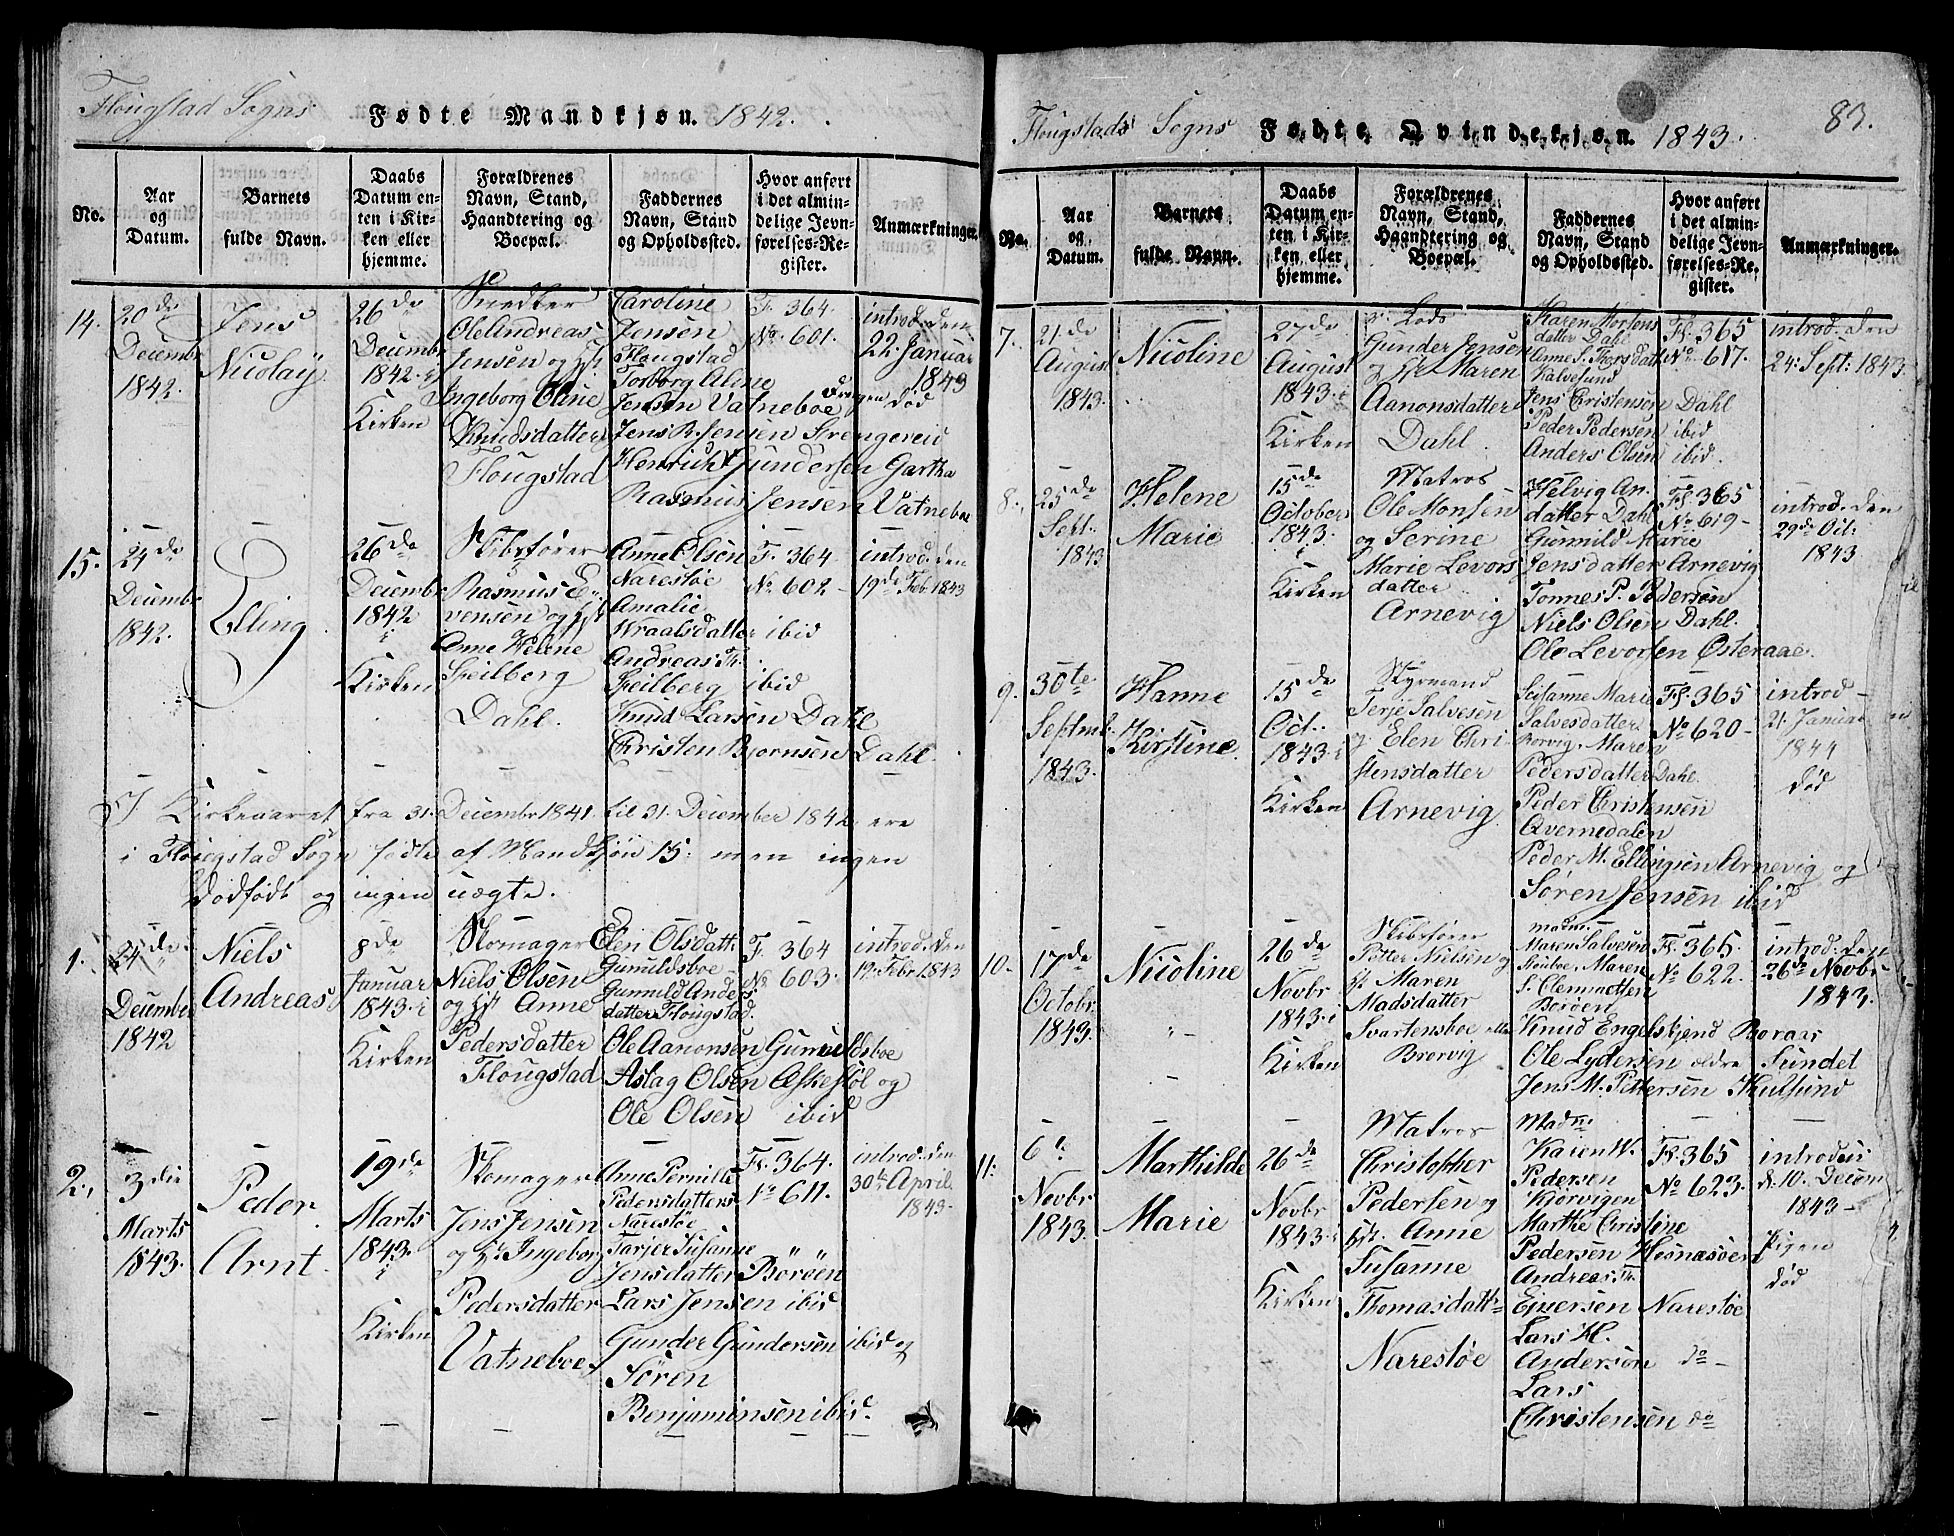 Flougstad Sogns Fødte Mandkjøn. 1842.
No.
Aar og Datum.
Barnets fulde Navn.
Daabs Datum enten i Kirken eller hjemme.
Forældrenes Navn, Stand, Haandtering og Boepæl.
Faddernes Navn, Stand og Opholdssted.
Hvor anført i det almindelige Jevnførelses-Register.
Anmærkninger.
14.
20de
Decembr
1842.
Jens
Nicolay
26de
Decembr
1842. i
Kirken
Snedker
Ole Andreas
Jensen og Hst
Ingeborg Oline
Knudsdatter
Flougstad
Caroline
Jensen
Flougstad
Torborg Aline
Jensen Vatneboe
Jens R. Jensen Strengereid
Henrich Gundersen Gartha
Rasmus Jensen Vatneboe
F. 364
No. 601.
introd. den
22. Januar
1843
Drengen død
15.
24de
Decembr
1842.
Elling
26de
Decembr
1842
i
Kirken
Skibsfører
Rasmus E-
vensen og Hst
Anne Helene
Feilberg
Dahl.
Anne Olsen
Narestøe
Amalie
Wraalsdatter ibid
Andreas Th.
Feilberg ibid
Knud Larsen Dahl
Christen Bjornsen Dahl.
F. 364
No. 602
introd. den
19de Feb. 1843
I Kirkeaaret fra 31. Decembr 1841. til 31. December 1842 ere
i Flougstad Sogn fødte af Mandkjøn 15: men ingen
Dødfødt og ingen uægte.
1.
24de
Decembr
1842
Niels
Andreas
8de
Januar
1843. i
Kirken
Skomager
Niels Olsen
og Hst Anne
Pedersdatter
Flougstad
Elen Olsdatt.
Gunuldsboe
Gunuld Anders
datter Flougstad.
Ole Aanonsen Gunuldsboe
Aslag Olsen Askesøl og
Ole Olsen ibid
F. 364
No. 603.
introd. den
19. Febr 1843
2.
3die
Marts
1843.
Peder
Arnt.
19de
Marts
1843.
i
Kirken
Skomager
Jens Jensen
og H. Ingeborg
Pedersdatter
Vatneboe
Anne Pernille
Pedersdatter
Narestøe
Tarjer Susanne
Jensdatter Borøen
Lars Jensen ibid
Gunder Gundersen ibid og
Søren
Benjaminsen ibid.
Fl. 364.
No 611.
introd. den
30te April
1843.
Flougstads Sogns Fødte Qvindekjøn. 1843.
83.
No.
Aar og Datum.
Barnets fulde Navn.
Daabs Datum enten i Kirken eller hjemme.
Forældrenes Navn, Stand, Haandtering og Boepæl.
Faddernes Navn, Stand og Opholdssted.
Hvor anført i det almindelige Jevnførelses-Register.
Anmærkninger.
7.
21de
August
1843.
Nicoline
27de
August
1843. i
Kirken
Lods
Gunder Jensen
og Hst Maren
Aanonsdatter
Dahl.
Karen Mortens
datter Dahl
Anne S. Thorsdatt
Kalvesund
Jens Christensen Dahl
Peder Pedersen ibid
Anders Olsen ibid.
Fl. 365
No 617.
introd. den
24. Sept: 1843
8.
25de
Sept.
1843
Helene
Marie
15de
October
1843.
i
Kirken
Matros
Ole Monsen
og Serine
Marie Levors
datter
Arnevig
Helvig An.
datter Dahl
Gunnild Marie
Jensdatter Arnevig
Tonnes P. Pedersen
Niels Olsen Dahl.
Ole Levorsen Østeraae.
Fl. 365
No 619
introd. den
29de Oct:
1843
9.
30te
Septmb.
1843.
Hanne
Kirstine
15de
Oct.
1843. i
Kirken
Styrmand
Terje Salvesen
og Elen Chri-
stensdatter
Arnevig
Susanne Marie
Salvesdatter
Borvig. Maren
Pedersdatter Dahl.
Peder Christensen
Qvernedalen
Peder M. Ellingsen Arnevig og
Søren Jensen ibid
Fl. 365
No 620
introd
21. Januar
1844
død
10.
17de
Octobr
1843.
Nicoline
26de
Novbr
1843. i
Kirken
Skibsfører
Petter Nielsen og
H. Maren
Madsdatter
Svartensboe
Brorvig
Madm.
Maren Salvesen
Maren
S. Clemmetsen
Borøen
Knud Engelskjend Boraas
Ole Lydersen ældre Sundet
Jens M. Pettersen Skulsund
Fl. 365
No 622.
introd. den
26de Novbr
1843.
11.
6te
Novbr
1843.
Marthilde
Marie
26de
Novbr
1843 i
Kirken
Matros
Christopher
Pedersen og
Hst. Anne
Susanne
Thomasdatt
Narestøe
Madme
Karen W.
Pedersen
Kjørvigen
Marthe Christine
Pedersen Hesnæsøen
Andreas Th.
Ejversen Narestøe
Lars H.
Andersen do
Lars
Christensen do
Fl. 365
No 623.
introd.
d. 10. Decem
1843
Pigen
død